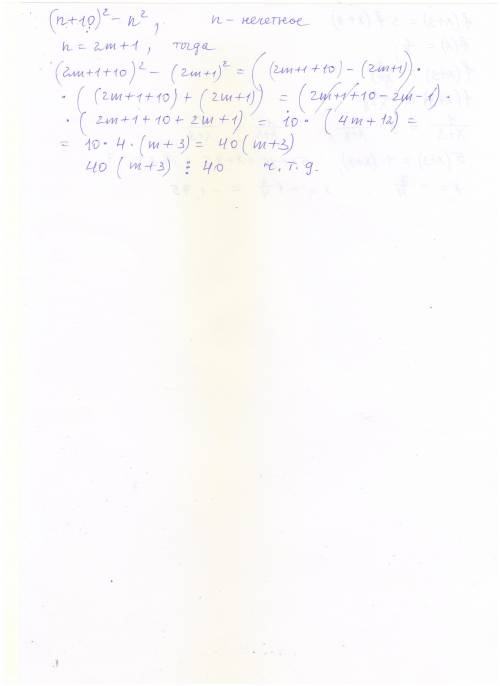 (n+10)² - n², n - нечетное
n = 2m+1, тогда
(2m+1+10)² - (2m+1)² = ((2m+1+10) - (2m+1)) ·
· ((2m+1+10) + (2m+1)) = (2m+1+10-2m-1) ·
· (2m+1+10+2m+1) = 10 · (4m+12) =
= 10 · 4 · (m+3) = 40(m+3)
40(m+3) ⋮ 40 ч.т.д.